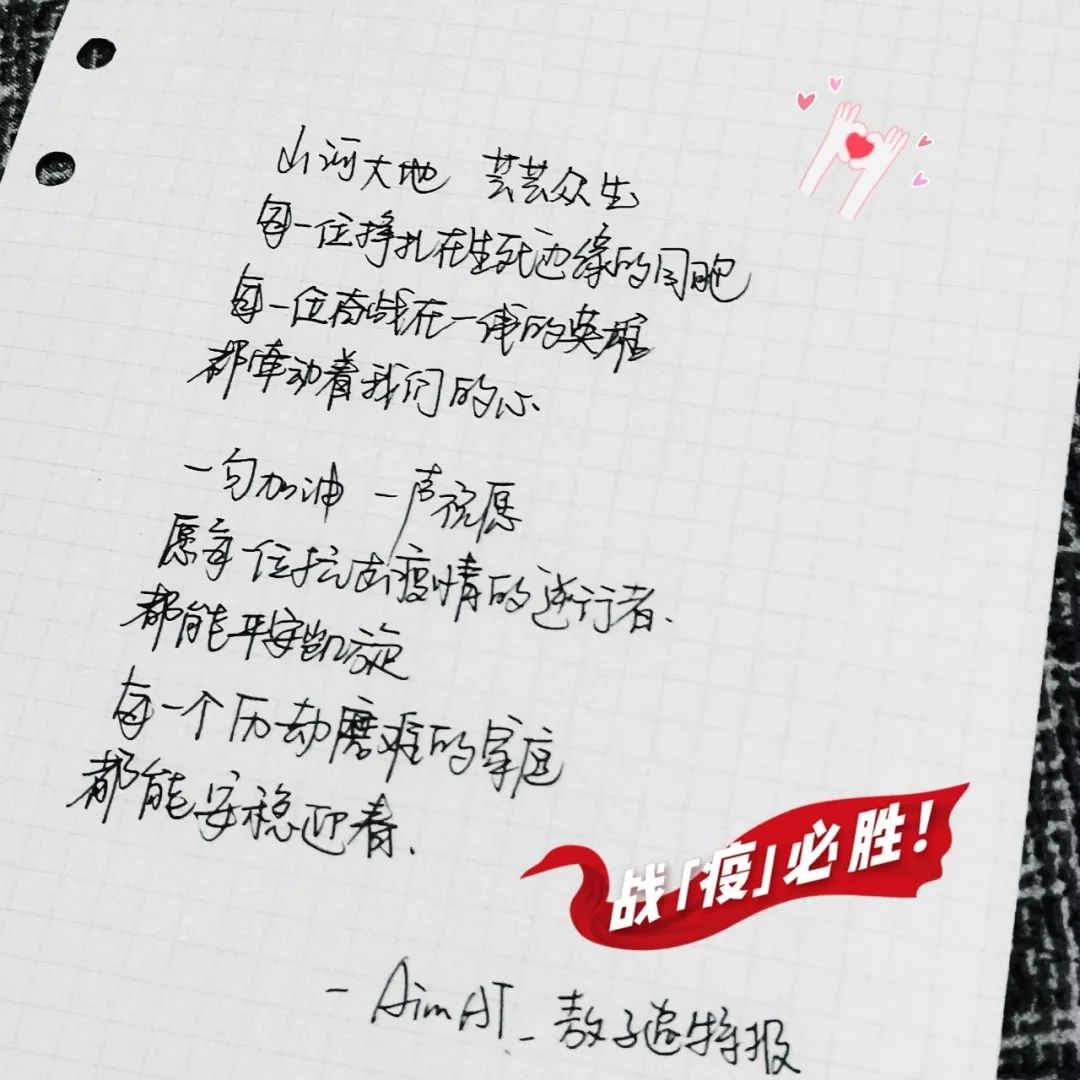 山河大地 芸芸众生
每一位挣扎在生死边缘的同胞
每一位奋战在一线的英雄
都牵动着我们的心
一句加油 一声祝愿
愿每位抗击疫情的逆行者.
都能平安凯旋
每一个历劫磨难的家庭
都能安稳迎春.
战「疫」必胜!
- Aim AT_敖子逸特报